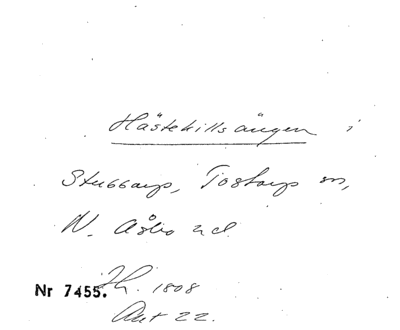 Hästekillsängen i
Stubbarp, Tostarp sn,
N. Åsbo hd.
Nr 7455. Jh. 1808
Akt 22.